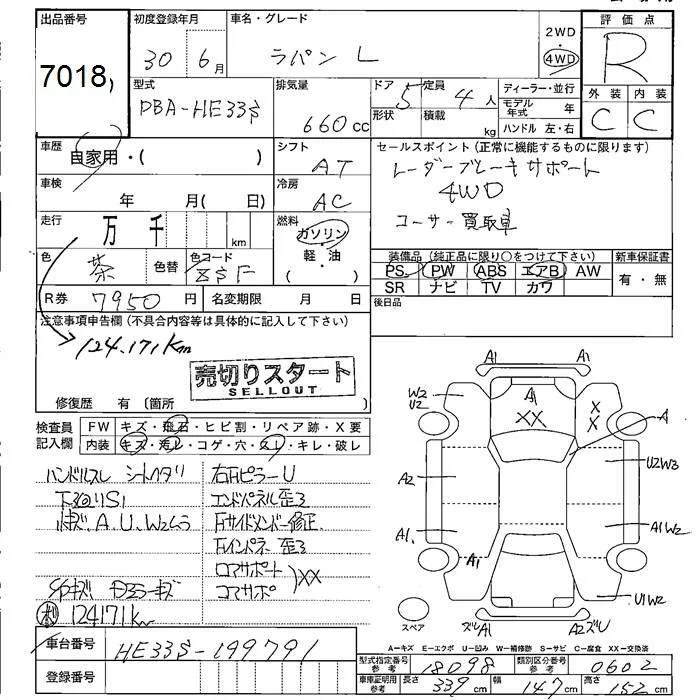 出品番号
7018
初度登録年月
30年 6月
車名・グレード
ラパン L
2WD
・
4WD
評価点
R
外装 内装
C C
型式
DBA-HE33S
排気量
660cc
ドア 5
形状
定員 4人
積載 kg
ディーラー・並行
モデル年式 年
ハンドル 左・右
車歴
自家用・( )
シフト
AT
セールスポイント(正常に機能するものに限ります)
レーダーブレーキサポート
4WD
ユーザー買取車
車検
年 月( 日)
冷房
AC
走行
万 千 km
燃料
ガソリン
軽・油
( )
色
茶
色替
色コード
ZSF
装備品(純正品に限り○をつけて下さい)
PS PW ABS エアB AW
SR ナビ TV カワ
新車保証書
有・無
R券 7950円
名変期限 月 日
後日品
注意事項申告欄(不具合内容等は具体的に記入して下さい)
124,171Km
売切りスタート
SELLOUT
修復歴 有〔箇所 〕
検査員
記入欄
FW キズ・飛石・ヒビ割・リペア跡・X要
内装 キズ・汚レ・コゲ・穴・スレ・キレ・破レ
ハンドルスレ シートヘタリ
下廻りS1
小キズ、A、U、W2ムラ
124171km
右Fピラー U
エンドパネル歪ミ
Fサイドメンバー修正
Fインパネ 歪ミ
ロアサポート
コアサポ
XX
A1 A1
W2
U2
A1
XX
X
X
A
A2
U2W3
A1
A1W2
A1
U1W2
スペア
ズレA1
A2ズU
A−キズ E−エクボ U−凹み W−補修跡 S−サビ C−腐食 XX−交換済
車台番号
HE33S-199791
登録番号
型式指定番号
参考
18098
類別区分番号
参考
0602
車庫証明用
参考
長さ 339cm
幅 147cm
高さ 152cm